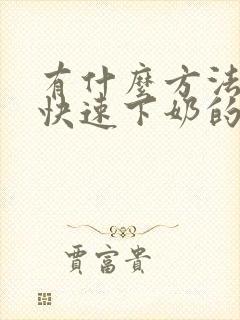 有什麼方法
快速下奶的
賈富貴